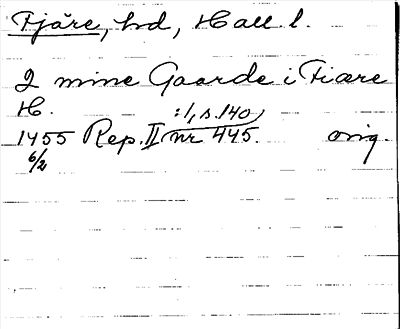 Fjäre, hd, Hall l.
2 mine Gaarde i Fiære
H.
:1, s. 140,
1455 Rep. II nr 445. orig.
6/2